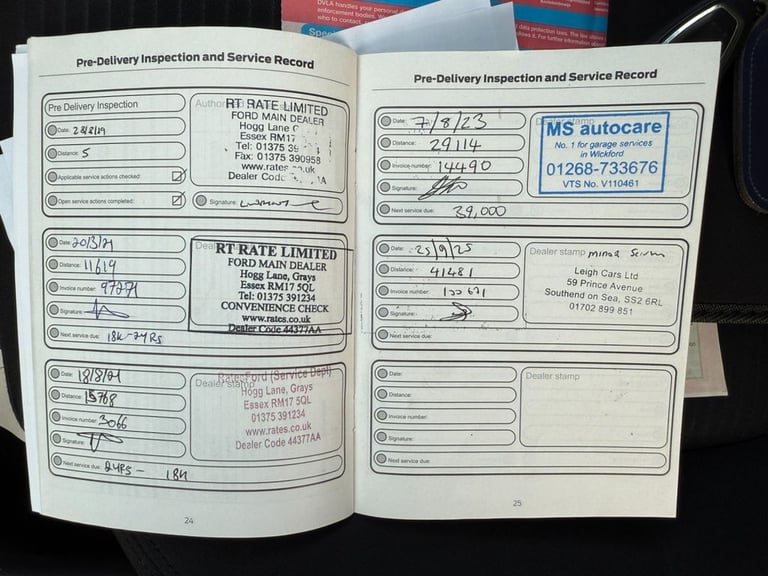 DVLA handles your personal
enforcement bodies.
who to contact
data protection laws.
For further information
Pre-Delivery Inspection and Service Record
Pre Delivery Inspection
Date: 28/8/19
Distance: 5
Applicable service actions checked:
Open service actions completed:
RT RATE LIMITED
FORD MAIN DEALER
Hogg Lane
Essex RM17
Tel: 01375 39
Fax: 01375 390958
www.rates
Dealer Code
Signature:
Date: 20/3/21
Distance: 11619
Invoice number: 97271
Signature:
Next service due: 18K-24RS
RT RATE LIMITED
FORD MAIN DEALER
Hogg Lane, Grays
Essex RM17 5QL
Tel: 01375 391234
CONVENIENCE CHECK
www.rates.co.uk
Dealer Code 44377AA
Date: 18/8/21
Distance: 15768
Invoice number: 3066
Signature:
Next service due: 2YRS - 18K
Dealer stamp
RatesFord (Service Dept)
Hogg Lane, Grays
Essex RM17 5QL
01375 391234
www.rates.co.uk
Dealer Code 44377AA
24
Pre-Delivery Inspection and Service Record
Date: 7/8/23
Distance: 29114
Invoice number: 14490
Signature:
Next service due: 39,000
Dealer stamp
MS autocare
No. 1 for garage services
in Wickford
01268-733676
VTS No. V110461
Date: 25/9/25
Distance: 41481
Invoice number:
Signature:
Next service due:
Dealer stamp minor Service
Leigh Cars Ltd
59 Prince Avenue
Southend on Sea, SS2 6RL
01702 899 851
Date:
Distance:
Invoice number:
Signature:
Next service due:
Dealer stamp
25